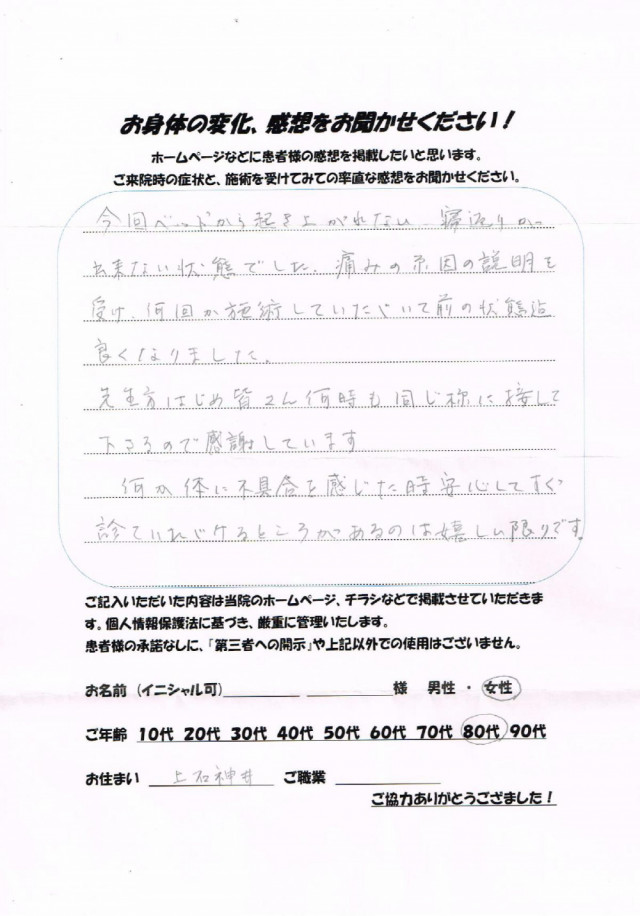 お身体の変化、感想をお聞かせください！
ホームページなどに患者様の感想を掲載したいと思います。
ご来院時の症状と、施術を受けてみての率直な感想をお聞かせください。
今回ベッドから起き上がれない、寝返りが
出来ない状態でした。痛みの原因の説明を
受け、何回か施術していただいて前の状態迄
良くなりました。
先生方はじめ皆さん何時も同じ様に接して
下さるので感謝しています
何か体に不具合を感じた時安心してすぐ
診ていただけるところがあるのは嬉しい限りです。
ご記入いただいた内容は当院のホームページ、チラシなどで掲載させていただきま
す。個人情報保護法に基づき、厳重に管理いたします。
患者様の承諾なしに、「第三者への開示」や上記以外での使用はございません。
お名前（イニシャル可） 様 男性 ・ 女性
ご年齢 10代 20代 30代 40代 50代 60代 70代 80代 90代
お住まい 上石神井 ご職業
ご協力ありがとうござました！